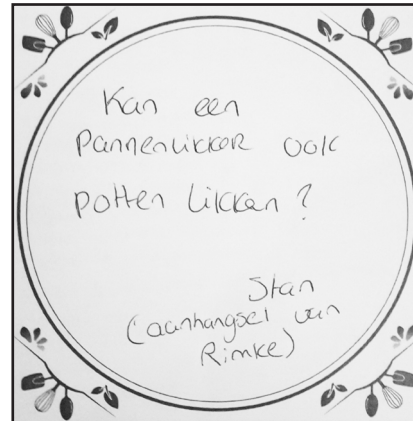 Kan een
Pannenlikker ook
potten likken?
Stan
(aanhangsel van
Rimke)